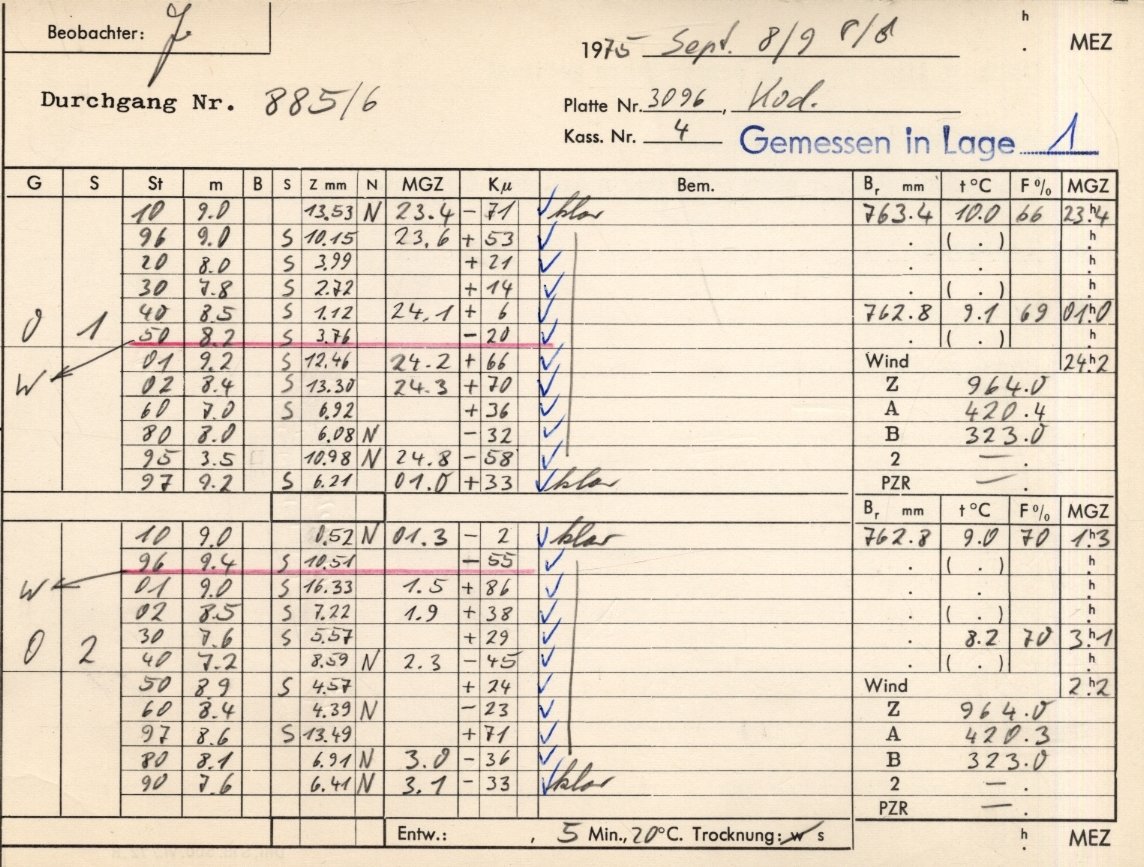 Beobachter: J
1975 Sept. 8/9 h . MEZ
Durchgang Nr. 885/6
Platte Nr. 3096, Kod.
Kass. Nr. 4 Gemessen in Lage 1
G S St m B S Z mm N MGZ Kμ Bem. Br mm t°C F% MGZ
10 9.0 13.53 N 23.4 - 71 klar 763.4 10.0 66 23h.4
96 9.0 S 10.15 23.6 + 53 . ( . ) h.
20 8.0 S 3.99 + 21 . . h.
30 7.8 S 2.72 + 14 . ( . ) h.
0 1 40 8.5 S 1.12 24.1 + 6 762.8 9.1 69 01h.0
50 8.2 S 3.76 - 20 . ( . ) h.
W 01 9.2 S 12.46 24.2 + 66 Wind 24h.2
02 8.4 S 13.30 24.3 + 70 Z 964.0
60 7.0 S 6.92 + 36 A 420.4
80 8.0 6.08 N - 32 B 323.0
95 3.5 10.98 N 24.8 - 58 2 — .
97 9.2 S 6.21 01.0 + 33 klar PZR — .
Br mm t°C F% MGZ
10 9.0 0.52 N 01.3 - 2 klar 762.8 9.0 70 1h.3
96 9.4 S 10.51 - 55 . ( . ) h.
W 01 9.0 S 16.33 1.5 + 86 . . h.
02 8.5 S 7.22 1.9 + 38 . ( . ) h.
0 2 30 7.6 S 5.57 + 29 . 8.2 70 3h.1
40 7.2 8.59 N 2.3 - 45 . ( . ) h.
50 8.9 S 4.57 + 24 Wind 2h.2
60 8.4 4.39 N - 23 Z 964.0
97 8.6 S 13.49 + 71 A 420.3
80 8.1 6.91 N 3.0 - 36 B 323.0
90 7.6 6.41 N 3.1 - 33 klar 2 — .
PZR — .
Entw.: , 5 Min., 20°C. Trocknung: w s h . MEZ